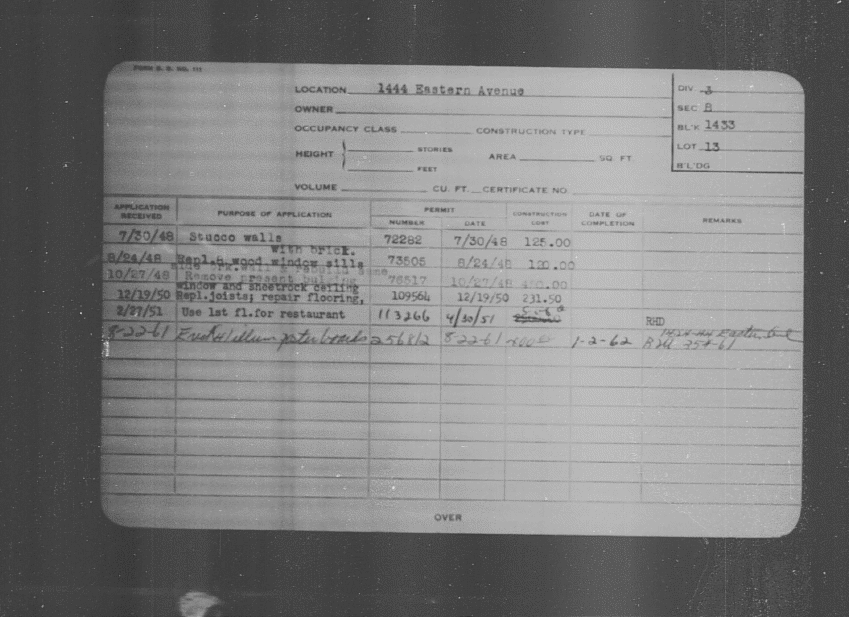 FORM B. D. NO. 111
LOCATION 1444 Eastern Avenue
DIV. 3
OWNER
SEC B
OCCUPANCY CLASS CONSTRUCTION TYPE
BL'K 1433
HEIGHT STORIES AREA SQ. FT.
FEET
LOT 13
B'L'DG
VOLUME CU. FT. CERTIFICATE NO.
APPLICATION RECEIVED PURPOSE OF APPLICATION PERMIT NUMBER DATE CONSTRUCTION COST DATE OF COMPLETION REMARKS
7/30/48 Stucco walls 72282 7/30/48 125.00
with brick.
8/24/48 Repl.8 wood window sills 73505 8/24/48 120.00
wall & rebuild same
10/27/48 Remove present bulging 76517 10/27/48
window and sheetrock ceiling
12/19/50 Repl.joists; repair flooring, 109564 12/19/50 231.50
2/27/51 Use 1st fl.for restaurant 113266 4/30/51 RHD
8-22-61 Erect 256812 8-22-61 1-2-62
OVER